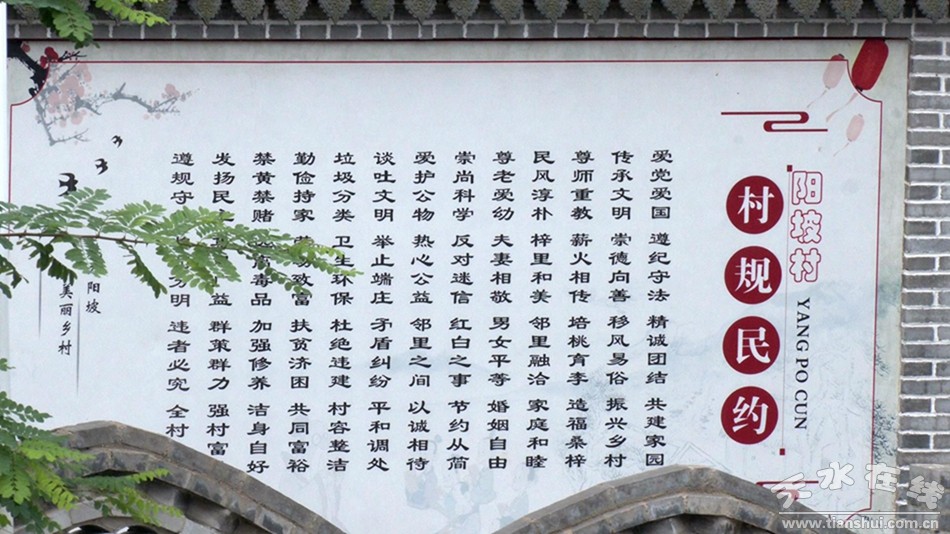 阳坡村
YANG PO CUN
村规民约
爱党爱国 遵纪守法 精诚团结 共建家园
传承文明 崇德向善 移风易俗 振兴乡村
尊师重教 薪火相传 培桃育李 造福桑梓
民风淳朴 梓里和美 邻里融洽 家庭和睦
尊老爱幼 夫妻相敬 男女平等 婚姻自由
崇尚科学 反对迷信 红白之事 节约从简
爱护公物 热心公益 邻里之间 以诚相待
谈吐文明 举止端庄 矛盾纠纷 平和调处
垃圾分类 卫生环保 杜绝违建 村容整洁
勤俭持家 致富 扶贫济困 共同富裕
禁黄禁赌 毒品 加强修养 洁身自好
发扬民 益 群策群力 强村富
遵规守 分明 违者必究 全村
阳坡
美丽乡村
天水在线
www.tianshui.com.cn